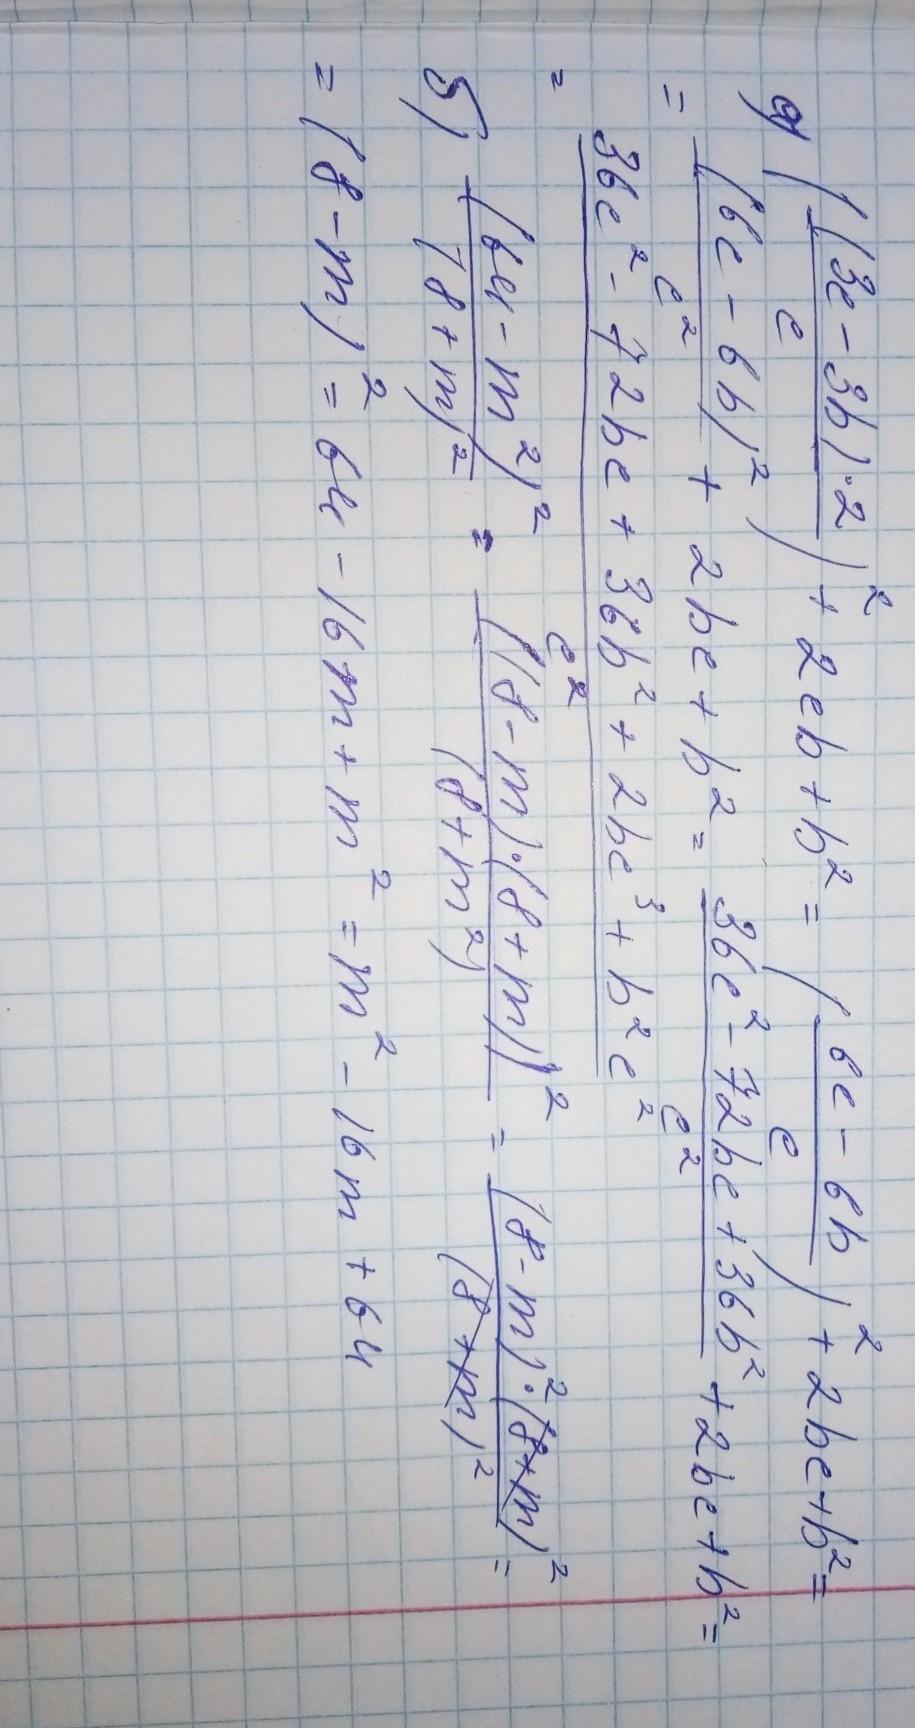 a) (((3c-3b)·2)/c)² + 2cb + b² = ((6c-6b)/c)² + 2bc + b² =
= (6c-6b)²/c² + 2bc + b² = (36c² - 72bc + 36b²)/c² + 2bc + b² =
= (36c² - 72bc + 36b² + 2bc³ + b²c²)/c²
б) (64-m²)²/(8+m)² = ((8-m)·(8+m))²/(8+m²) = (8-m)²·(8+m)²/(8+m)² =
= (8-m)² = 64 - 16m + m² = m² - 16m + 64